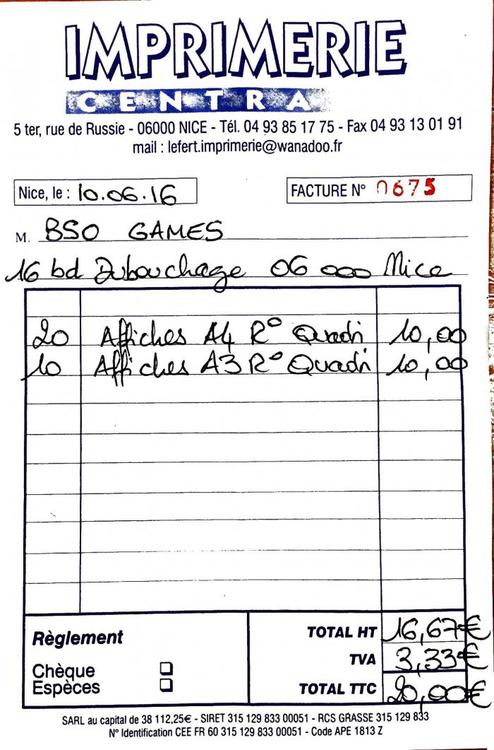 IMPRIMERIE
CENTRA
5 ter, rue de Russie - 06000 NICE - Tél. 04 93 85 17 75 - Fax 04 93 13 01 91
mail : lefert.imprimerie@wanadoo.fr
Nice, le : 10.06.16 FACTURE N° 0675
M. BSO GAMES
16 bd Dubouchage 06 000 Nice
20 Affiches A4 R° Quadri 10,00
10 Affiches A3 R° Quadri 10,00
Règlement TOTAL HT 16,67€
TVA 3,33€
Chèque
Espèces TOTAL TTC 20,00€
SARL au capital de 38 112,25€ - SIRET 315 129 833 00051 - RCS GRASSE 315 129 833
N° Identification CEE FR 60 315 129 833 00051 - Code APE 1813 Z